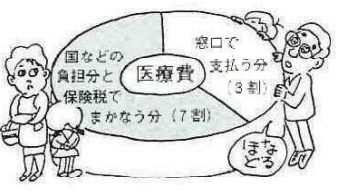 国などの
負担分と
保険税で
まかなう分（7割）
医療費
窓口で
支払う分
（3割）
なるほど